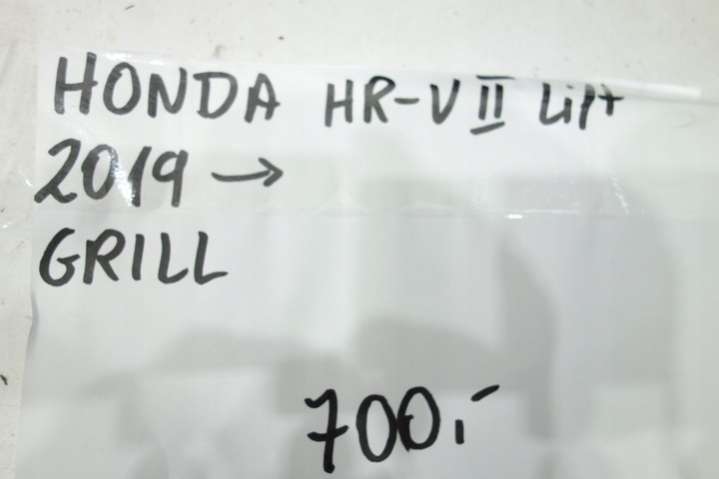 HONDA HR-V II Lift
2019 →
GRILL
700,-